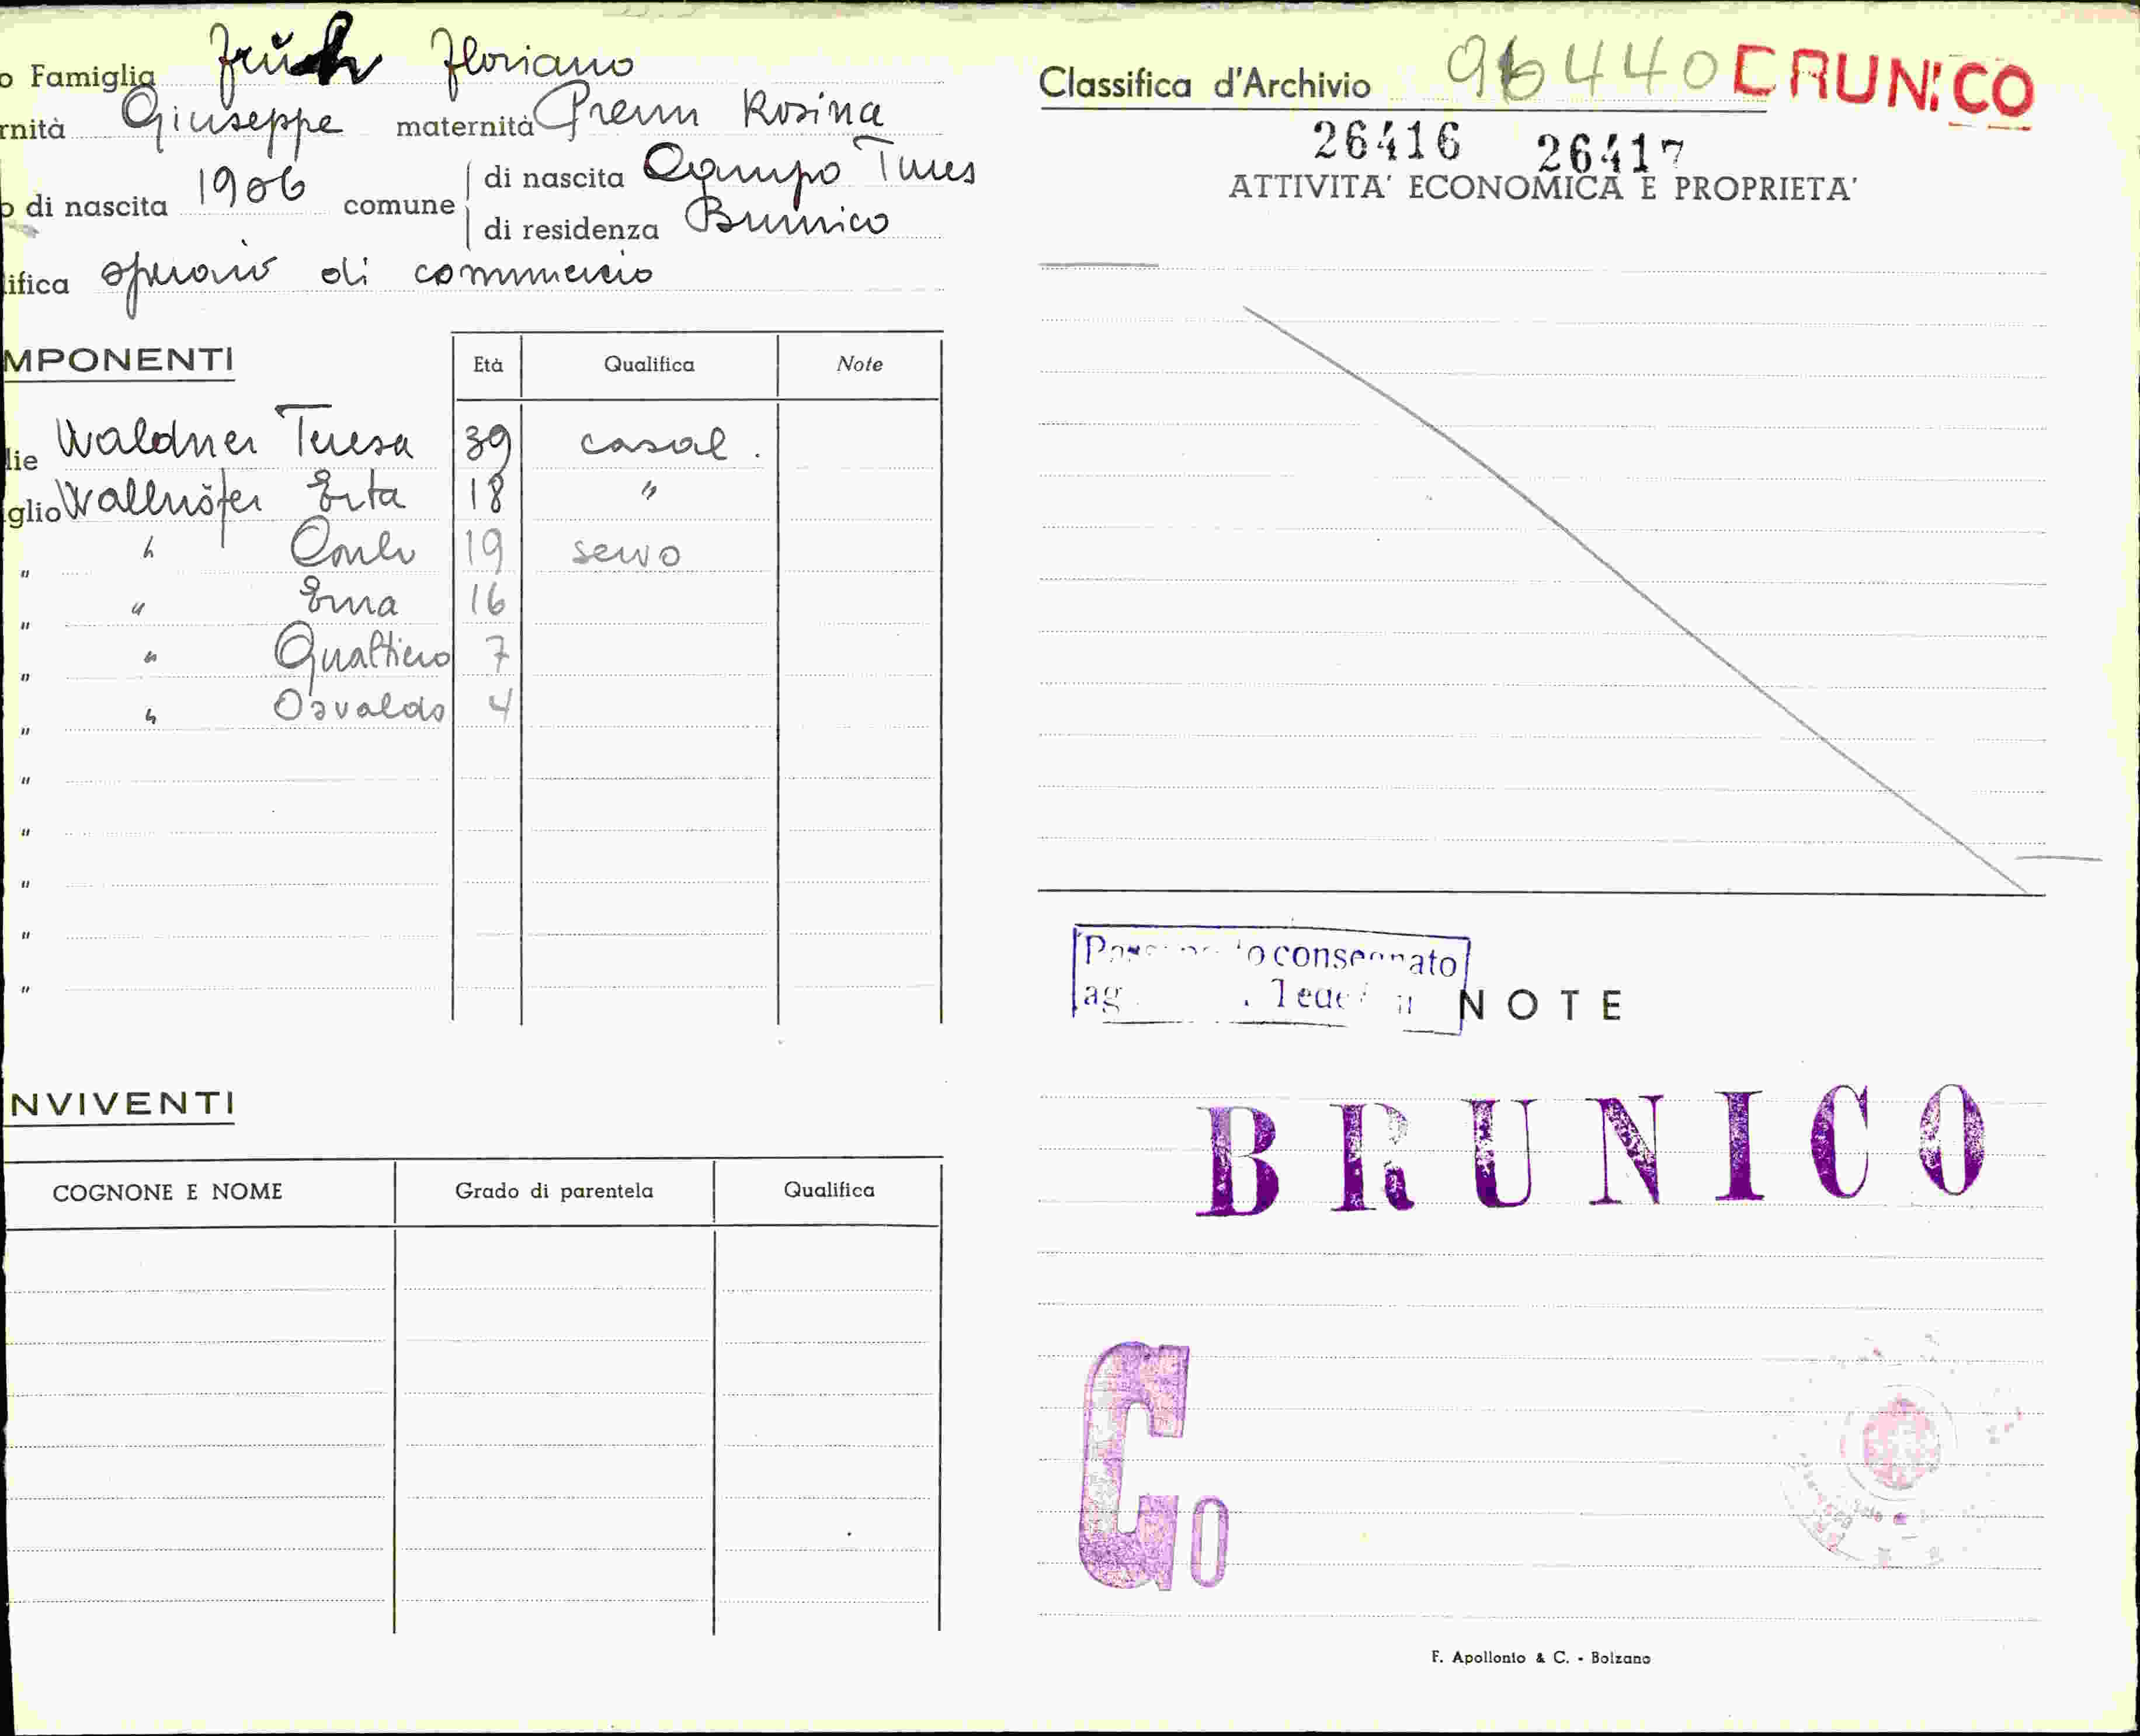 o Famiglia Früh Floriano
rnità Giuseppe maternità Prenn Rosina
o di nascita 1906 comune di nascita Campo Tures
di residenza Brunico
ifica operaio di commercio
MPONENTI
Età Qualifica Note
lie Waldner Teresa 39 casal.
glio Wallnöfer Erta 18 "
" " Carlo 19 servo
" " Erna 16
" " Gualtiero 7
" " Osvaldo 4
"
"
"
"
"
NVIVENTI
COGNONE E NOME Grado di parentela Qualifica
Classifica d'Archivio 96440 BRUNICO
26416 26417
ATTIVITA' ECONOMICA E PROPRIETA'
consegnato
ag
NOTE
BRUNICO
Go
F. Apollonio & C. - Bolzano